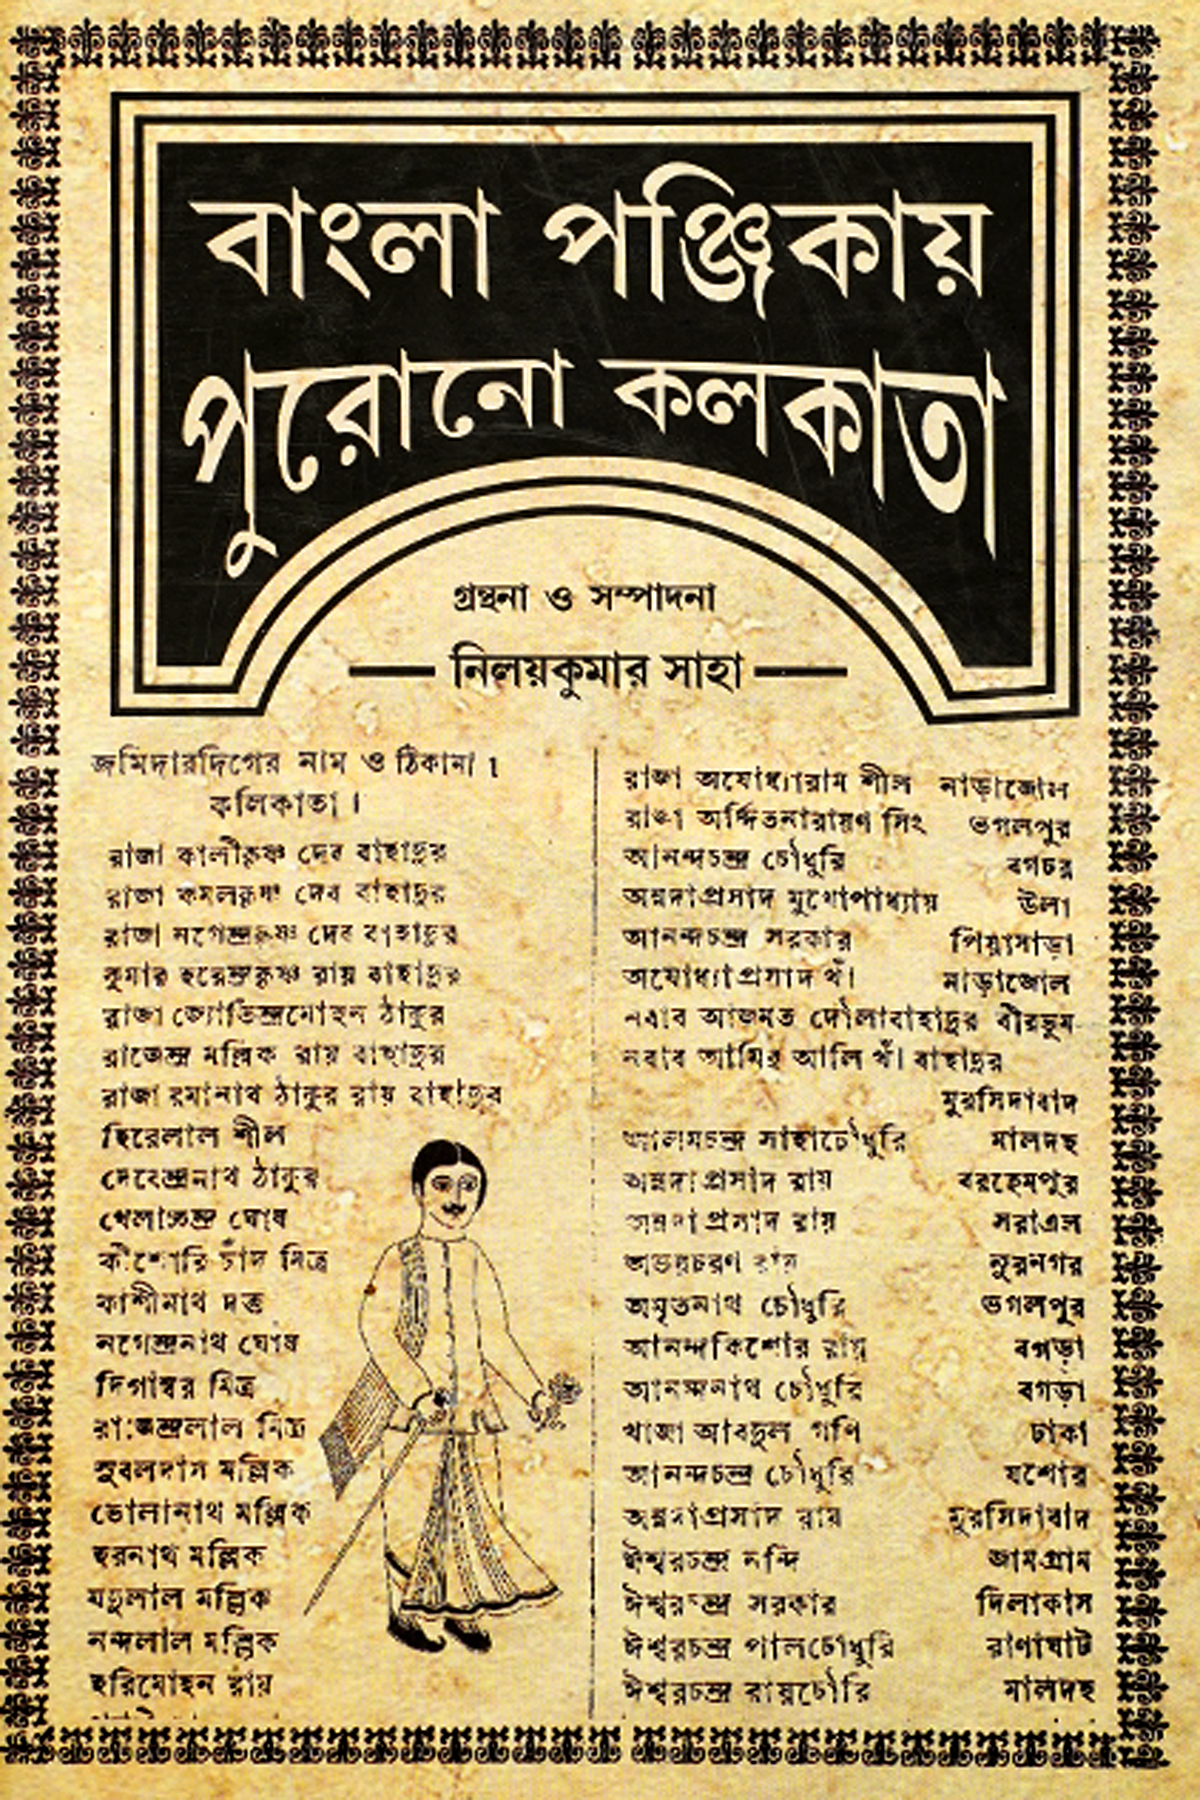 বাংলা পঞ্জিকায়
পুরোনো কলকাতা
গ্রন্থনা ও সম্পাদনা
নিলয়কুমার সাহা
জমিদারদিগের নাম ও ঠিকানা।
কলিকাতা।
রাজা কালীকৃষ্ণ দেব বাহাদুর
রাজা কমলকৃষ্ণ দেব বাহাদুর
রাজা নগেন্দ্রকৃষ্ণ দেব বাহাদুর
কুমার হরেন্দ্রকৃষ্ণ রায় বাহাদুর
রাজা জ্যোতিন্দ্রমোহন ঠাকুর
রাজেন্দ্র মল্লিক রায় বাহাদুর
রাজা রমানাথ ঠাকুর রায় বাহাদুর
হিরেলাল শীল
দেবেন্দ্রনাথ ঠাকুর
খেলাচ্চন্দ্র ঘোষ
কীশোরি চাঁদ মিত্র
কাশীনাথ দত্ত
নগেন্দ্রনাথ ঘোষ
দিগাম্বর মিত্র
রাজেন্দ্রলাল মিত্র
সুবলদাস মল্লিক
ভোলানাথ মল্লিক
হরনাথ মল্লিক
যদুলাল মল্লিক
নন্দলাল মল্লিক
হরিমোহন রায়
রাজা অযোধ্যারাম শীল নাড়াজোল
রাজা অর্দ্দিতনারায়ণ সিং ভগলপুর
আনন্দচন্দ্র চৌধুরি বগচর
অন্নদাপ্রসাদ মুখোপাধ্যায় উলা
আনন্দচন্দ্র সরকার পিয়াসাড়া
অযোধ্যাপ্রসাদ খাঁ নাড়াজোল
নবাব আজমত দৌলাবাহাদুর বীরভুম
নবাব আমির আলি খাঁ বাহাদুর
মুরসিদাবাদ
আলমচন্দ্র সাহাচৌধুরি মালদহ
অন্নদাপ্রসাদ রায় বরহেমপুর
অন্নদাপ্রসাদ রায় সরাএল
অভয়চরণ রায় নুরনগর
অমৃতনাথ চৌধুরি ভগলপুর
আনন্দকিশোর রায় বগড়া
আনন্দনাথ চৌধুরি বগড়া
খাজা আবদুল গণি ঢাকা
আনন্দচন্দ্র চৌধুরি যশোর
অন্নদাপ্রসাদ রায় মুরসিদাবাদ
ঈশ্বরচন্দ্র নন্দি জামগ্রাম
ঈশ্বরচন্দ্র সরকার দিলাকাস
ঈশ্বরচন্দ্র পালচৌধুরি রাণাঘাট
ঈশ্বরচন্দ্র রায়চৌরি মালদহ